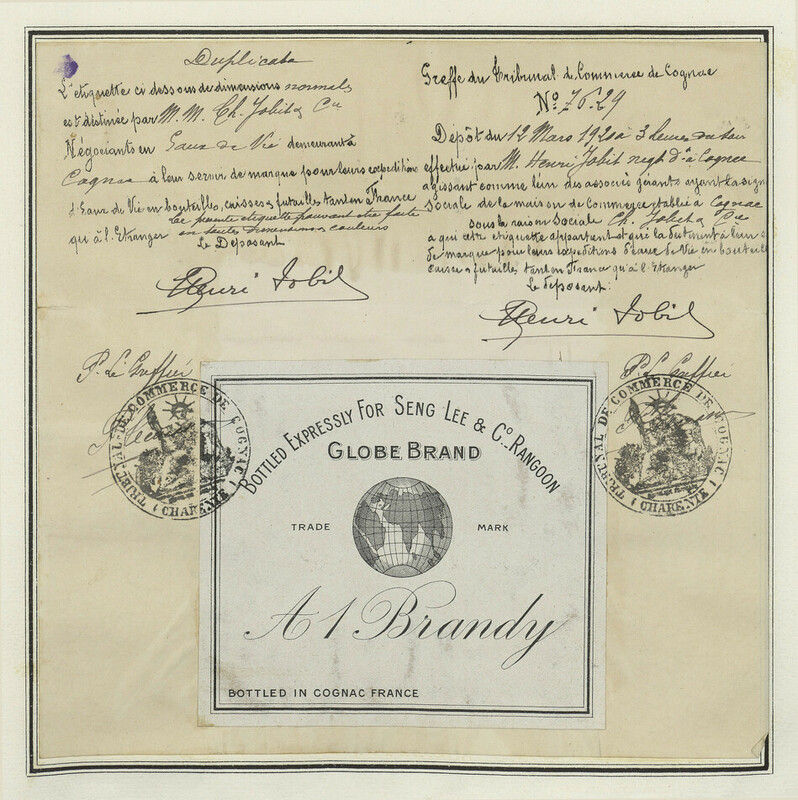 Duplicata
L'etiquette ci dessous de dimensions normales
est destinée par M. M. Ch. Jobit & Cie
Négociants en Eaux de Vie demeurant à
Cognac à leur servir de marque pour leurs expéditions
d'Eaux de Vie en bouteilles, caisses & futailles tant en France
qu'à l'Etranger
La presente etiquette pouvant etre faite
en toutes dimensions & couleurs
Le Deposant
Henri Jobit
P. Le Greffier
Greffe du Tribunal de Commerce de Cognac
No. 76.29
Dépôt du 12 Mars 192 à 3 heures du soir
effectué par M. Henri Jobit negt dt à Cognac
agissant comme l'un des associés gérants ayant la sign
sociale de la maison de Commerce établie à Cognac
sous la raison sociale Ch. Jobit & Cie
à qui cette etiquette appartient et qui la destinent à leur
de marque pour leurs expeditions d'eaux de Vie en bouteil
caisses & futailles tant en France qu'à l'Etranger
Le deposant:
Henri Jobit
P. Le Greffier
TRIBUNAL DE COMMERCE DE COGNAC
(CHARENTE)
TRIBUNAL DE COMMERCE DE COGNAC
(CHARENTE)
BOTTLED EXPRESSLY FOR SENG LEE & Co. RANGOON
GLOBE BRAND
TRADE MARK
A1 Brandy
BOTTLED IN COGNAC FRANCE